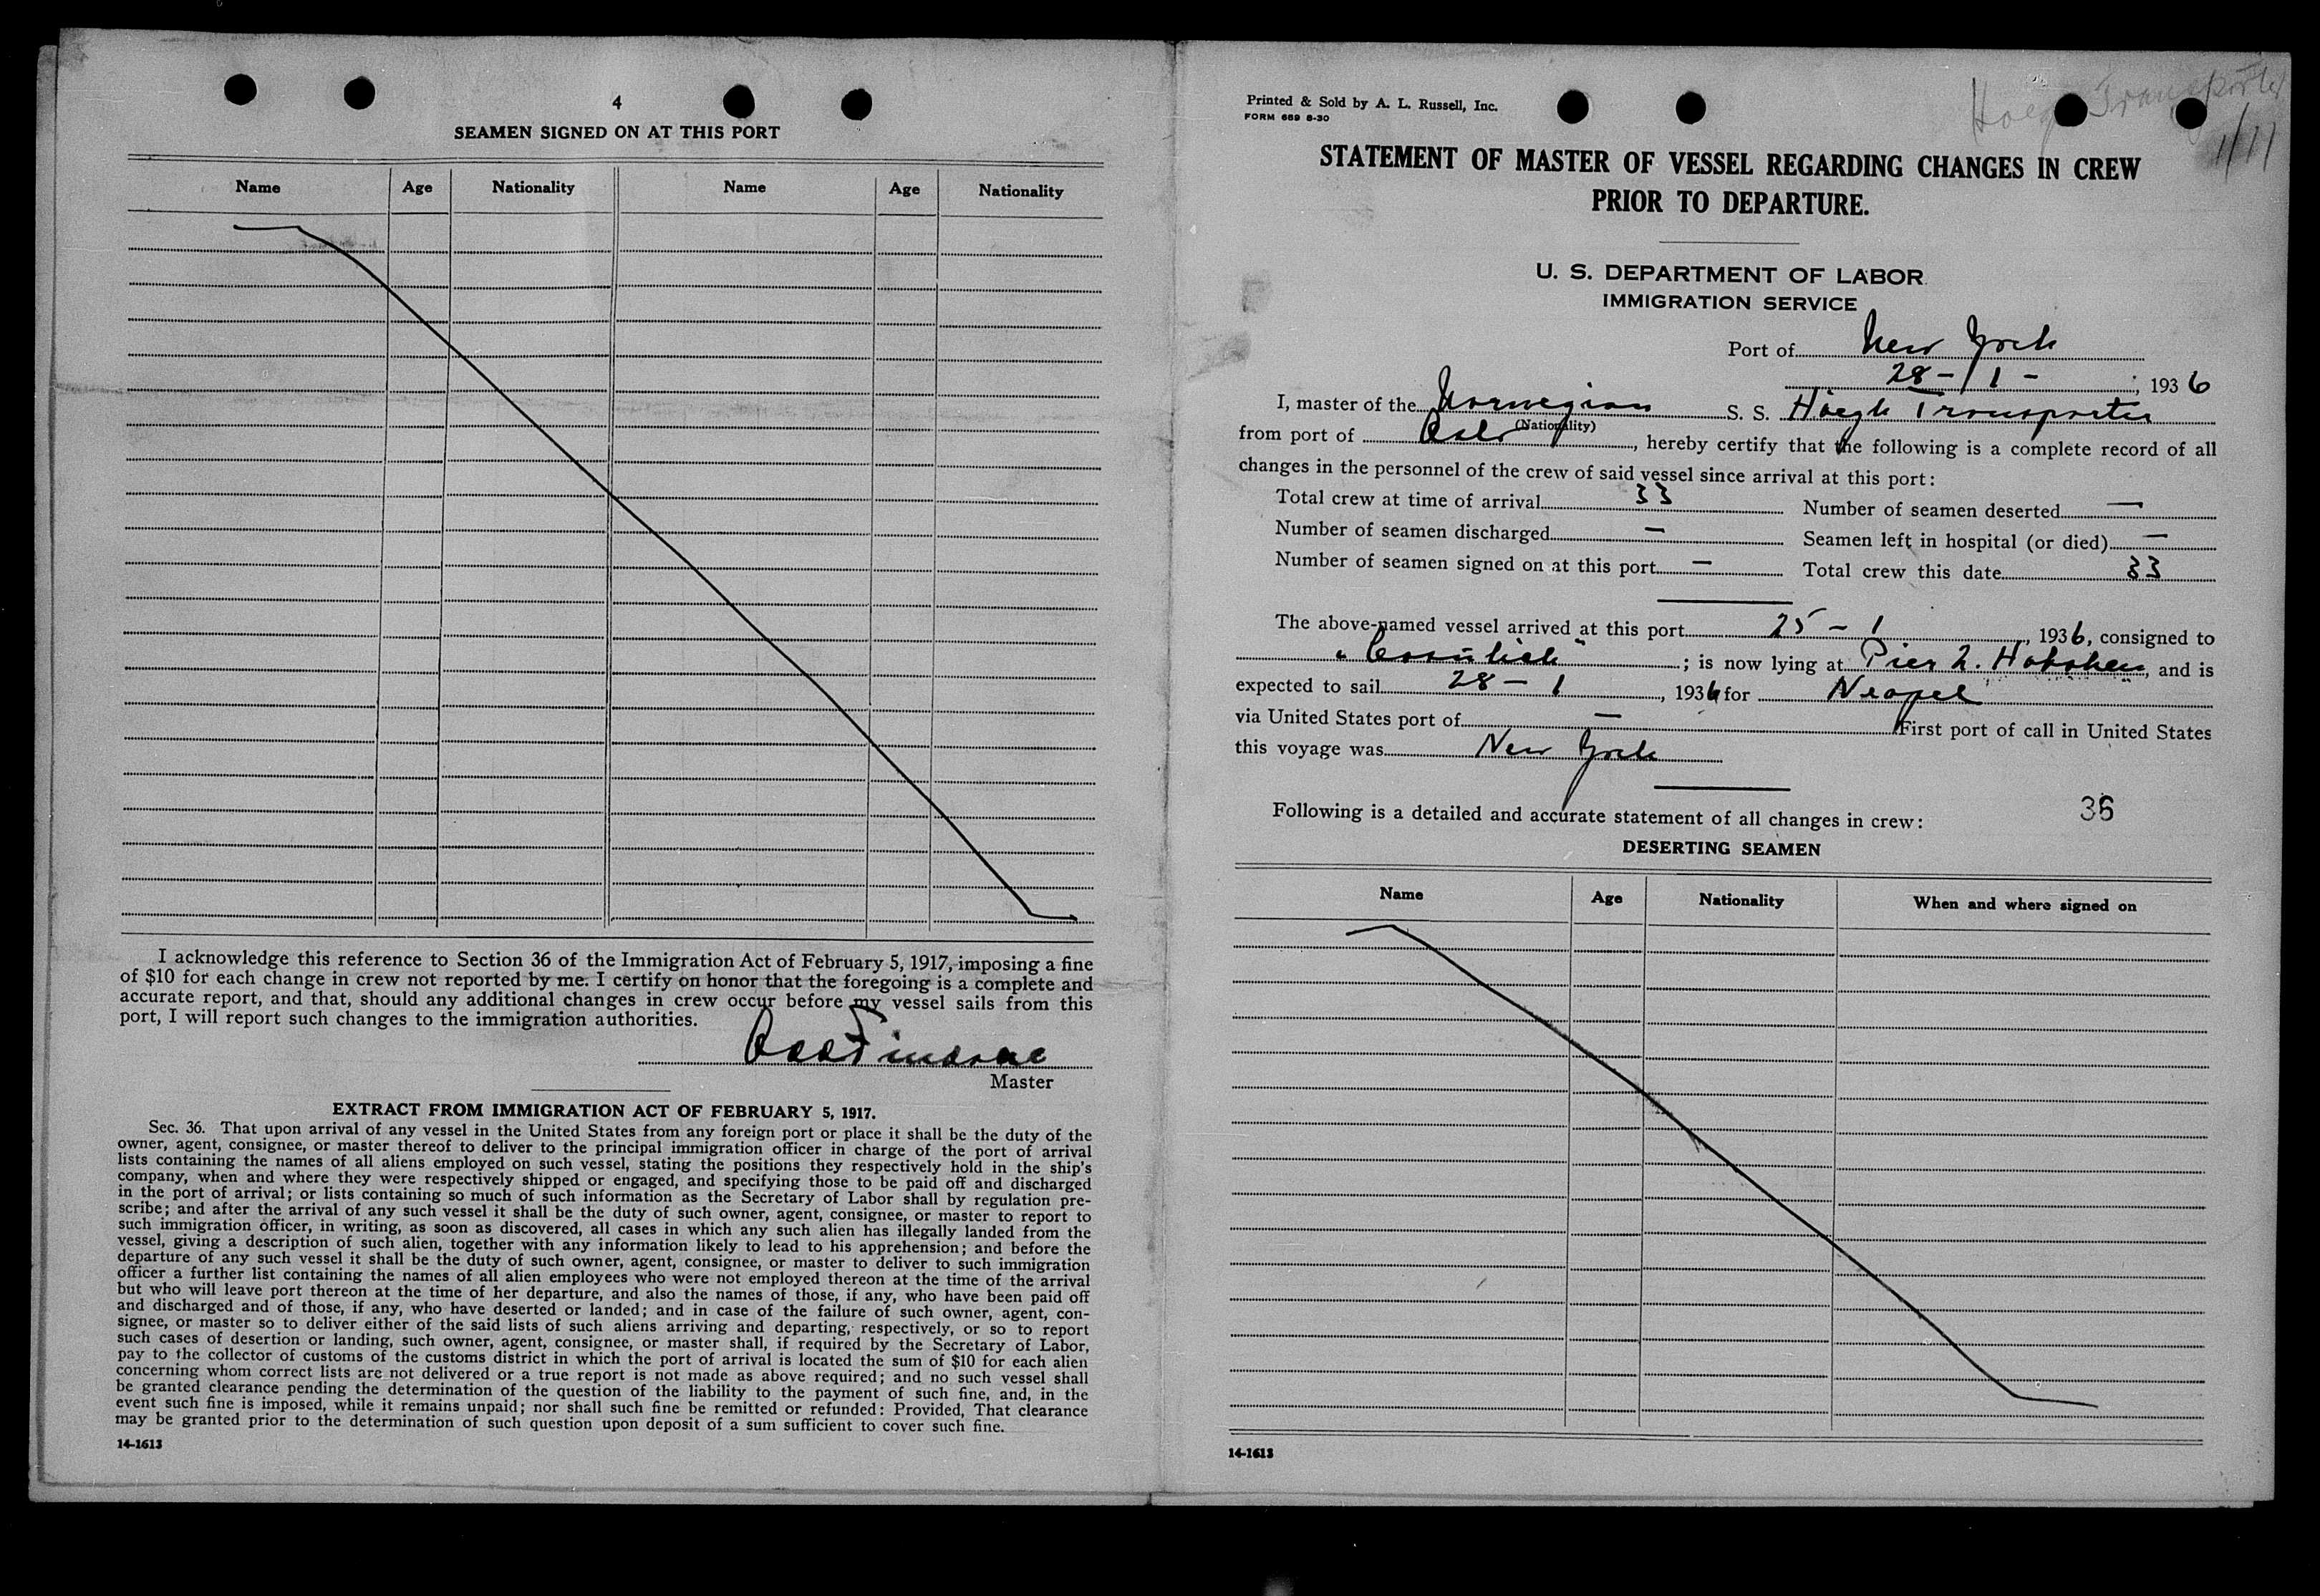 4
SEAMEN SIGNED ON AT THIS PORT
Name Age Nationality Name Age Nationality
I acknowledge this reference to Section 36 of the Immigration Act of February 5, 1917, imposing a fine
of $10 for each change in crew not reported by me. I certify on honor that the foregoing is a complete and
accurate report, and that, should any additional changes in crew occur before my vessel sails from this
port, I will report such changes to the immigration authorities.
Master
EXTRACT FROM IMMIGRATION ACT OF FEBRUARY 5, 1917.
Sec. 36. That upon arrival of any vessel in the United States from any foreign port or place it shall be the duty of the
owner, agent, consignee, or master thereof to deliver to the principal immigration officer in charge of the port of arrival
lists containing the names of all aliens employed on such vessel, stating the positions they respectively hold in the ship's
company, when and where they were respectively shipped or engaged, and specifying those to be paid off and discharged
in the port of arrival; or lists containing so much of such information as the Secretary of Labor shall by regulation pre-
scribe; and after the arrival of any such vessel it shall be the duty of such owner, agent, consignee, or master to report to
such immigration officer, in writing, as soon as discovered, all cases in which any such alien has illegally landed from the
vessel, giving a description of such alien, together with any information likely to lead to his apprehension; and before the
departure of any such vessel it shall be the duty of such owner, agent, consignee, or master to deliver to such immigration
officer a further list containing the names of all alien employees who were not employed thereon at the time of the arrival
but who will leave port thereon at the time of her departure, and also the names of those, if any, who have been paid off
and discharged and of those, if any, who have deserted or landed; and in case of the failure of such owner, agent, con-
signee, or master so to deliver either of the said lists of such aliens arriving and departing, respectively, or so to report
such cases of desertion or landing, such owner, agent, consignee, or master shall, if required by the Secretary of Labor,
pay to the collector of customs of the customs district in which the port of arrival is located the sum of $10 for each alien
concerning whom correct lists are not delivered or a true report is not made as above required; and no such vessel shall
be granted clearance pending the determination of the question of the liability to the payment of such fine, and, in the
event such fine is imposed, while it remains unpaid; nor shall such fine be remitted or refunded: Provided, That clearance
may be granted prior to the determination of such question upon deposit of a sum sufficient to cover such fine.
14-1613
Hoegh Transporter
1/11
Printed & Sold by A. L. Russell, Inc.
FORM 689 8-30
STATEMENT OF MASTER OF VESSEL REGARDING CHANGES IN CREW
PRIOR TO DEPARTURE.
U. S. DEPARTMENT OF LABOR
IMMIGRATION SERVICE
Port of New York
28-/1-, 1936
I, master of the Norwegian S. S. Höegh Transporter
(Nationality)
from port of Oslo, hereby certify that the following is a complete record of all
changes in the personnel of the crew of said vessel since arrival at this port:
Total crew at time of arrival 33 Number of seamen deserted —
Number of seamen discharged — Seamen left in hospital (or died) —
Number of seamen signed on at this port — Total crew this date 33
The above-named vessel arrived at this port 25 - 1, 1936, consigned to
"Cosulich"; is now lying at Pier 2. Hoboken, and is
expected to sail 28 - 1, 1936 for Neapel
via United States port of — First port of call in United States
this voyage was New York
Following is a detailed and accurate statement of all changes in crew: 36
DESERTING SEAMEN
Name Age Nationality When and where signed on
14-1613